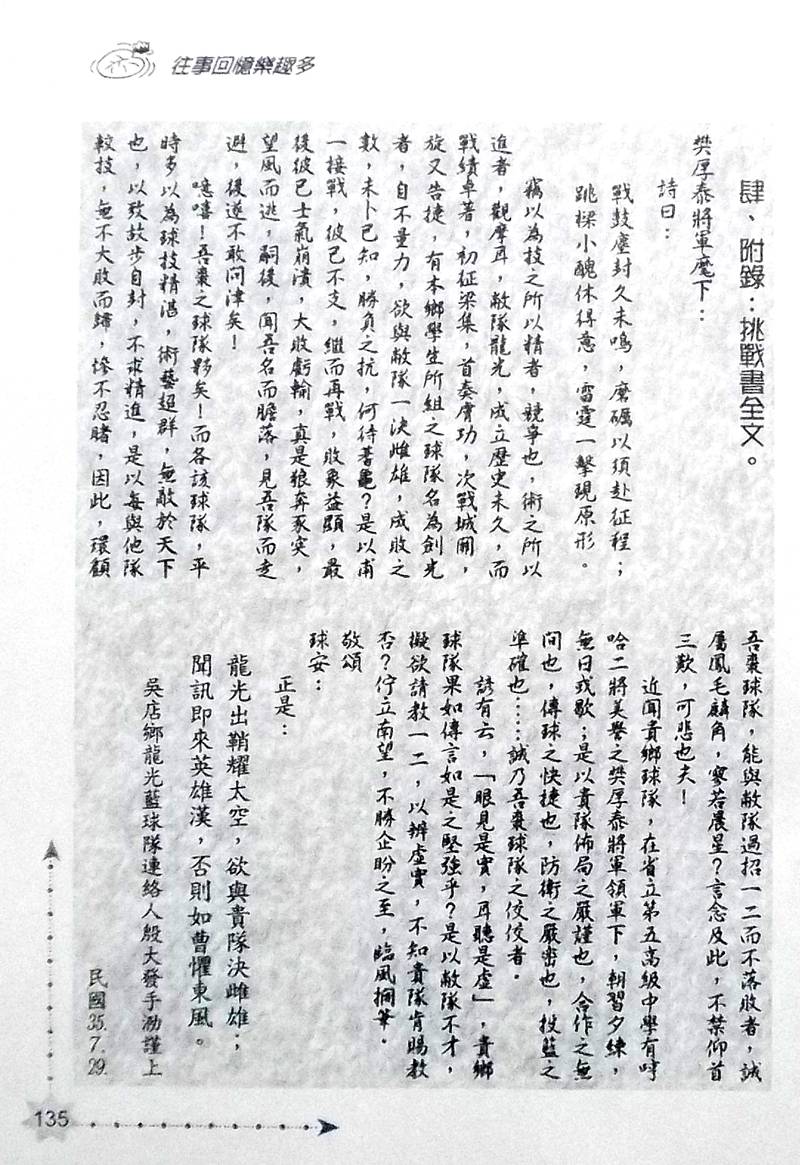 往事回憶樂趣多
肆、附錄：挑戰書全文。
樊厚泰將軍麾下：
詩曰：
戰鼓塵封久未鳴，磨礪以須赴征程；
跳樑小醜休得意，雷霆一擊現原形。
竊以為技之所以精者，競爭也，術之所以
進者，觀摩耳，敝隊龍光，成立歷史未久，而
戰績卓著，初征梁集，首奏膚功，次戰城關，
旋又告捷，有本鄉學生所組之球隊名為劍光
者，自不量力，欲與敝隊一決雌雄，成敗之
數，未卜已知，勝負之抗，何待蓍龜？是以甫
一接戰，彼已不支，繼而再戰，敗象益顯，最
後彼已士氣崩潰，大敗虧輸，真是狼奔豕突，
望風而逃，嗣後，聞吾名而膽落，見吾隊而走
避，後遂不敢問津矣！
噫嘻！吾棗之球隊夥矣！而各該球隊，平
時多以為球技精湛，術藝超群，無敵於天下
也，以致故步自封，不求精進，是以每與他隊
較技，無不大敗而歸，慘不忍睹，因此，環顧
吾棗球隊，能與敝隊過招一二而不落敗者，誠
屬鳳毛麟角，寥若晨星？言念及此，不禁仰首
三歎，可悲也夫！
近聞貴鄉球隊，在省立第五高級中學有呼
哈二將美譽之樊厚泰將軍領軍下，朝習夕練，
無日或歇；是以貴隊佈局之嚴謹也，合作之無
間也，傳球之快捷也，防衛之嚴密也，投籃之
準確也……誠乃吾棗球隊之佼佼者。
諺有云，「眼見是實，耳聽是虛」，貴鄉
球隊果如傳言如是之堅強乎？是以敝隊不才，
擬欲請教一二，以辨虛實，不知貴隊肯賜教
否？佇立南望，不勝企盼之至，臨風擱筆。
敬頌
球安：
正是：
龍光出鞘耀太空，欲與貴隊決雌雄；
聞訊即來英雄漢，否則如曹懼東風。
吳店鄉龍光籃球隊連絡人殷大發手泐謹上
民國35.7.29.
135